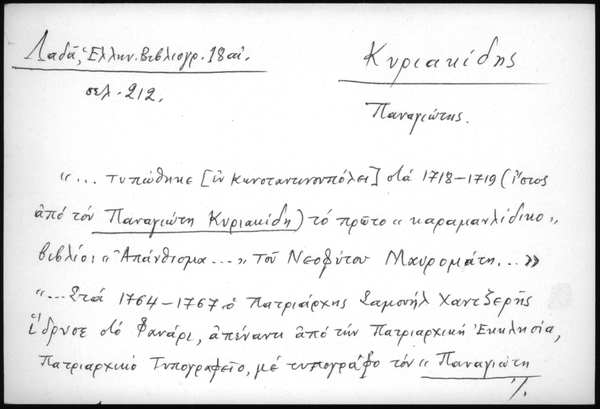 Λαδᾶ, Ἑλλην. Βιβλιογρ. 18 αἰ.
σελ. 212.
Κυριακίδης
Παναγιώτης.
"... τυπώθηκε [ἐν Κωνσταντινουπόλει] στά 1718-1719 (ἴσως
ἀπό τόν Παναγιώτη Κυριακίδη) τό πρῶτο "καραμανλίδικο"
βιβλίο: "Ἀπάνθισμα..." τοῦ Νεοφύτου Μαυρομάτη..."
"...Στά 1764-1767 ὁ Πατριάρχης Σαμουήλ Χαντζερῆς
ἵδρυσε στό Φανάρι, ἀπέναντι ἀπό τήν Πατριαρχική Ἐκκλησία,
Πατριαρχικό Τυπογραφεῖο, μέ τυπογράφο τόν "Παναγιώτη
./.